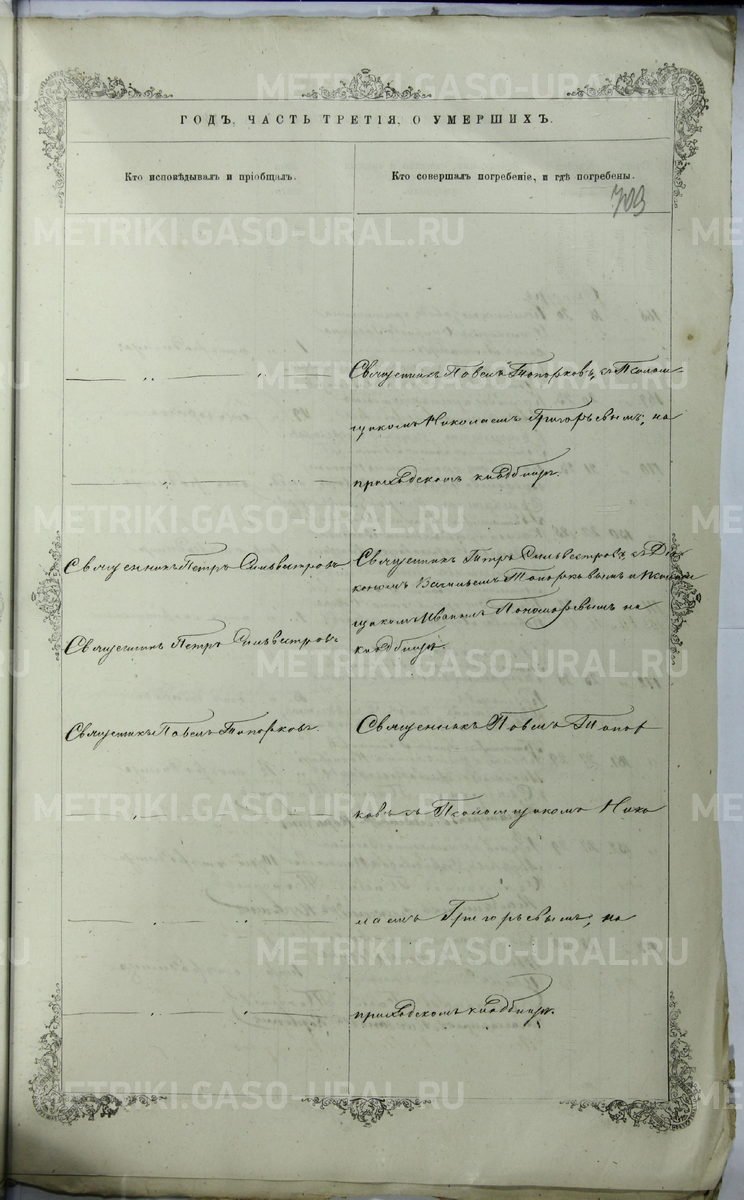 ГОДЪ, ЧАСТЬ ТРЕТІЯ, О УМЕРШИХЪ.
Кто исповѣдывалъ и пріобщалъ.
Кто совершалъ погребеніе, и гдѣ погребены.
703
Священникъ Павелъ Топорковъ, съ Псалом
щикомъ Николаемъ Григорьевымъ, на
приходскомъ кладбищѣ.
Священникъ Петръ Сильвестровъ
Священникъ Петръ Сильвестровъ, съ Діа
кономъ Василіемъ Топорковымъ и Псалом
щикомъ Иваномъ Пономаревымъ на
Священникъ Петръ Сильвестровъ
кладбищѣ.
Священникъ Павелъ Топорковъ.
Священникъ Павелъ Топор
ковъ съ Псаломщикомъ Нико
лаемъ Григорьевымъ, на
приходскомъ кладбищѣ.
METRIKI.GASO-URAL.RU